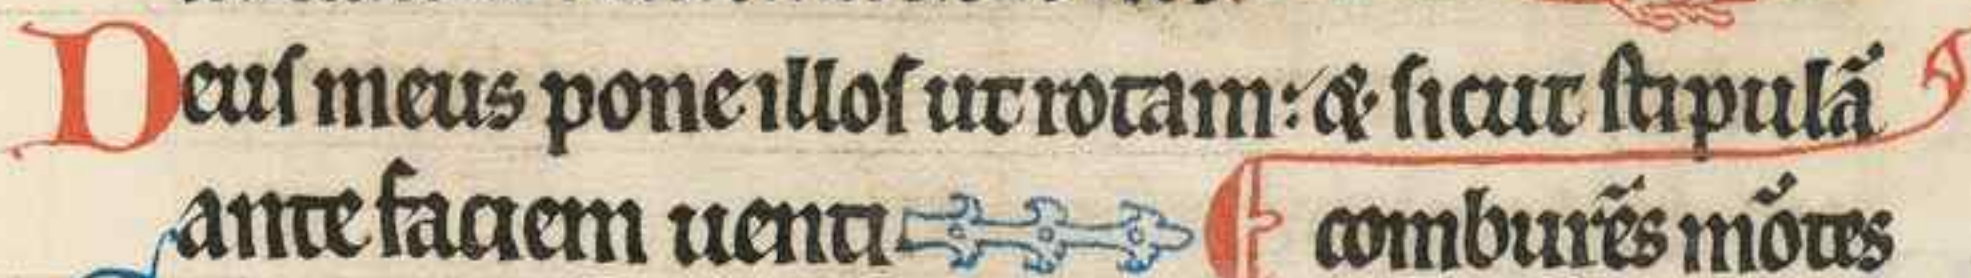 Deuſ meus pone illoſ ut rotam: & ſicut ſtipulã
ante faciem uenti
comburẽs mõtes